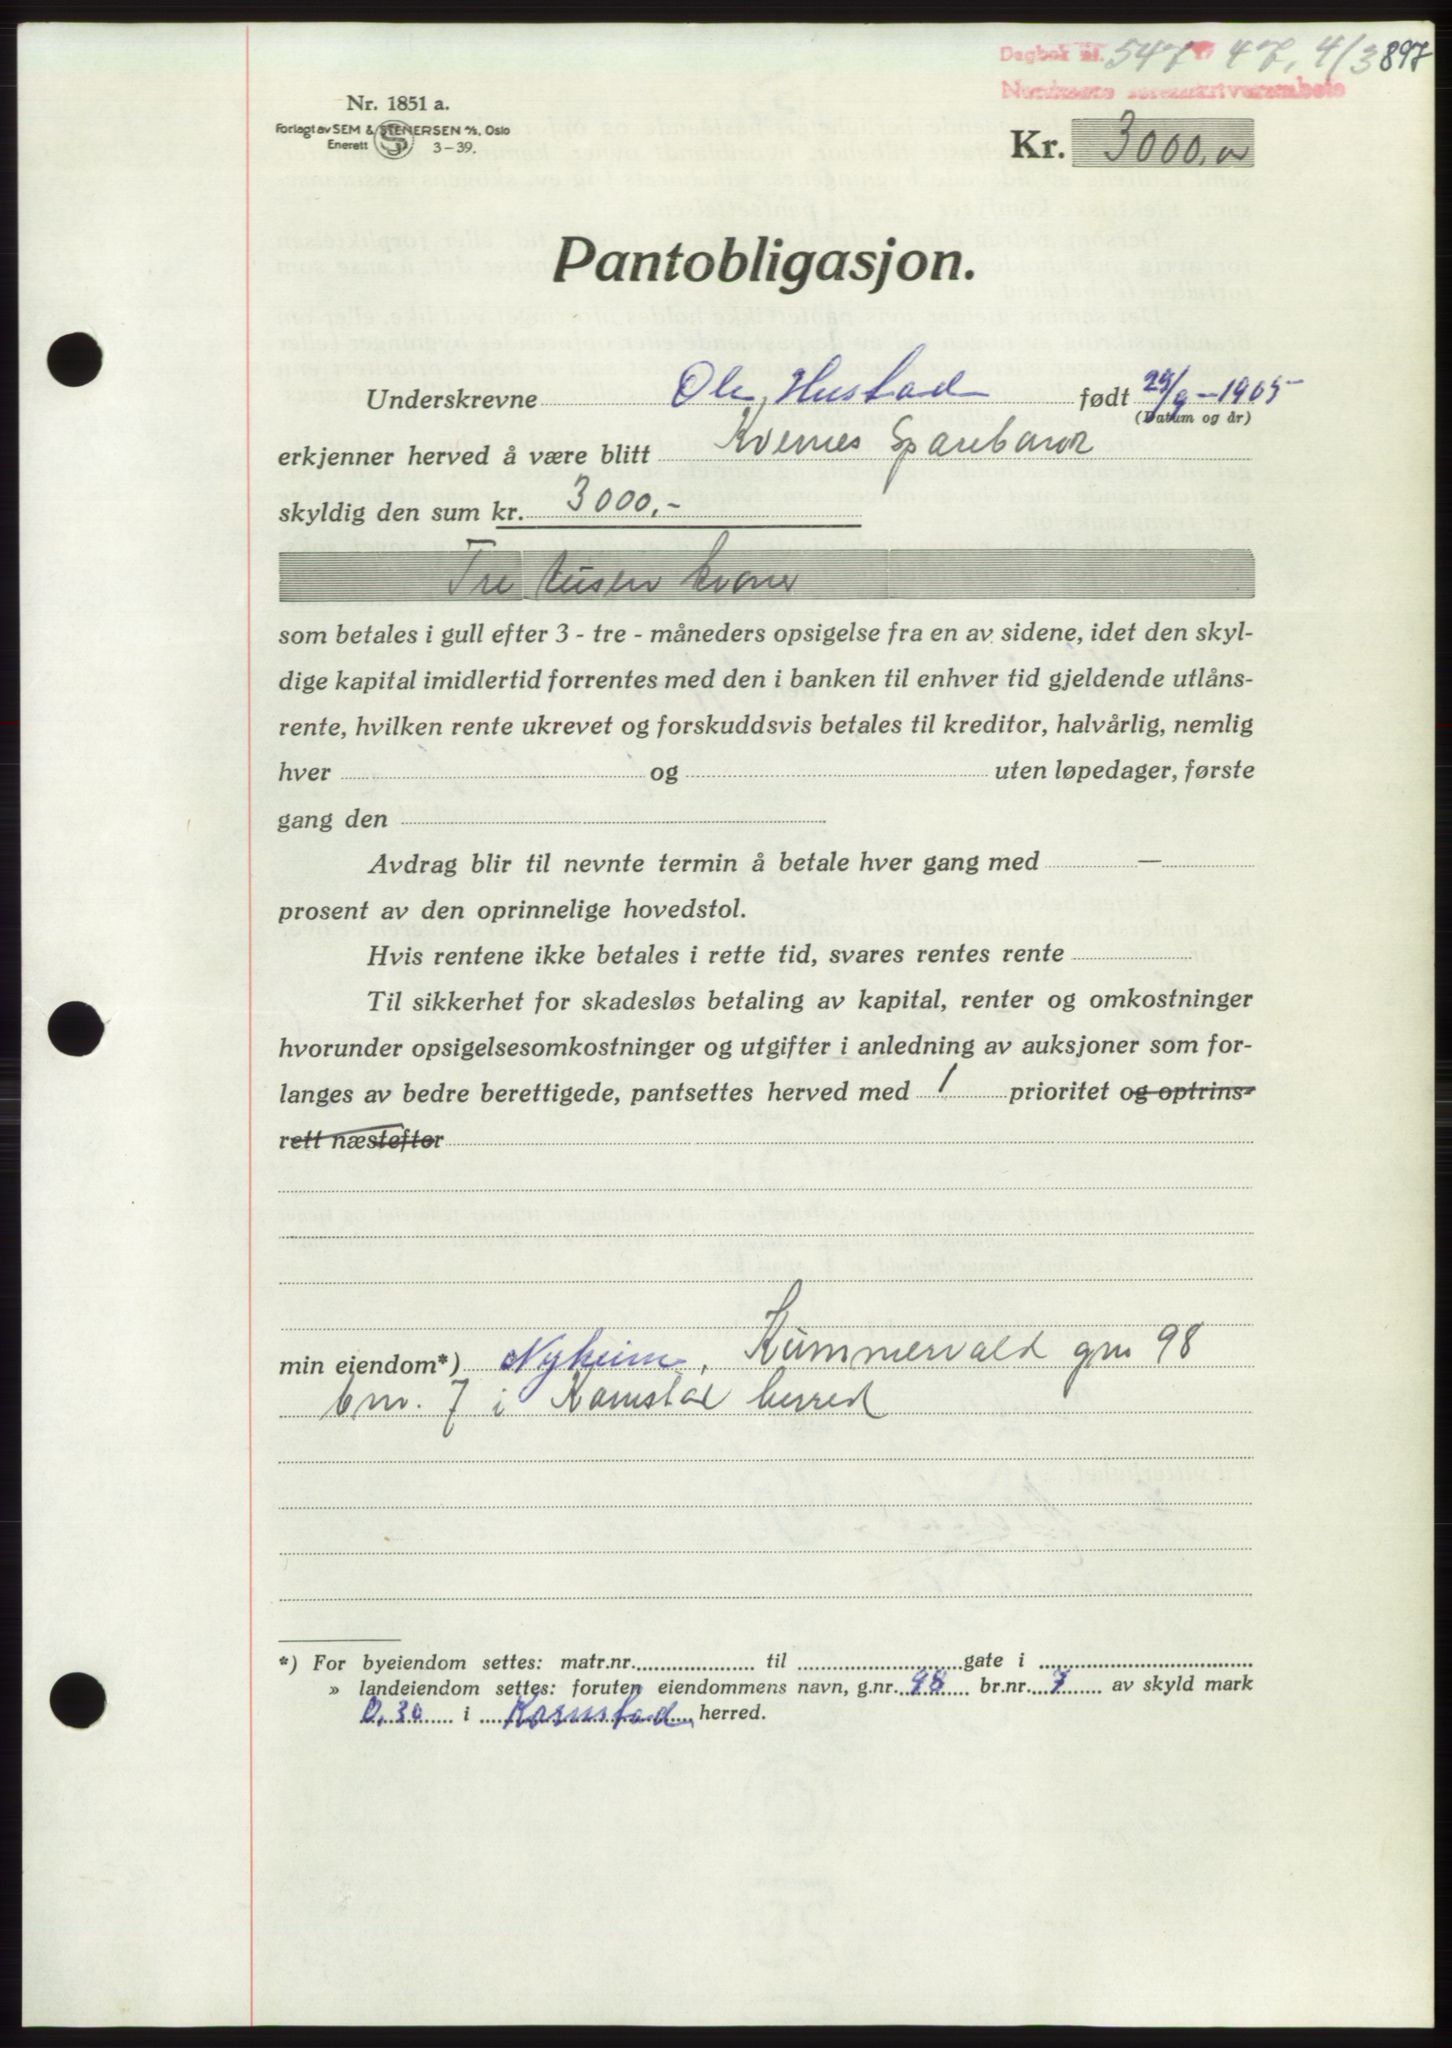 Dagbok nr. 547 47, 4/3 897
Nordmøre sorenskriverembete
Nr. 1851 a.
Forlagt av SEM & STENERSEN A/S, Oslo
Enerett 3-39.
Kr. 3000,00
Pantobligasjon.
Underskrevne Ole Hustad født 29/9-1905
(Datum og år)
erkjenner herved å være blitt Kvernes Sparebank
skyldig den sum kr. 3000,-
Tre tusen kroner
som betales i gull efter 3 - tre - måneders opsigelse fra en av sidene, idet den skyl-
dige kapital imidlertid forrentes med den i banken til enhver tid gjeldende utlåns-
rente, hvilken rente ukrevet og forskuddsvis betales til kreditor, halvårlig, nemlig
hver og uten løpedager, første
gang den
Avdrag blir til nevnte termin å betale hver gang med —
prosent av den oprinnelige hovedstol.
Hvis rentene ikke betales i rette tid, svares rentes rente
Til sikkerhet for skadesløs betaling av kapital, renter og omkostninger
hvorunder opsigelsesomkostninger og utgifter i anledning av auksjoner som for-
langes av bedre berettigede, pantsettes herved med 1 prioritet og optrins-
rett næstefter
min eiendom*) Nyheim, Kummervold gnr 98
bnr. 7 i Kornstad herred
*) For byeiendom settes: matr.nr. til gate i
» landeiendom settes: foruten eiendommens navn, g.nr. 98 br.nr. 7 av skyld mark
0,30 i Kornstad herred.